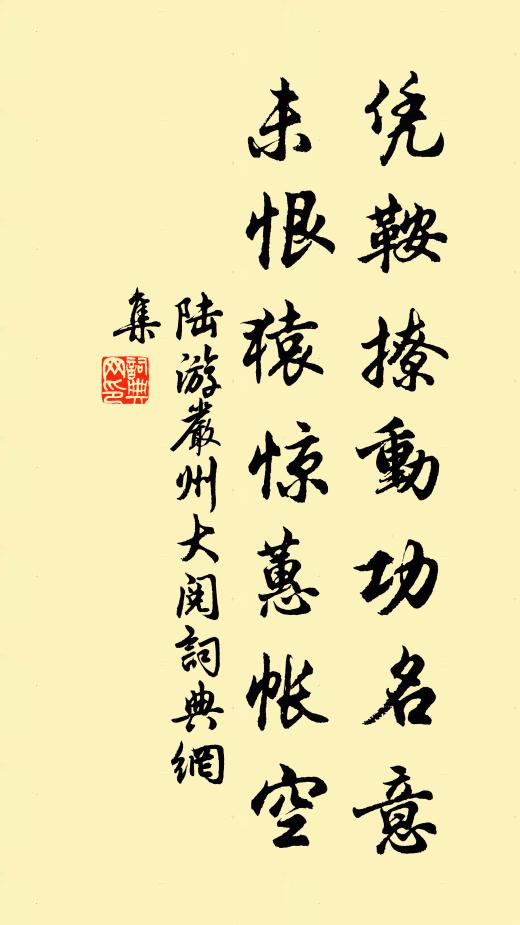 凭鞍撩動功名意
未恨猿惊蕙帐空
陆游嚴州大阅詞典網
集
詞典
网印